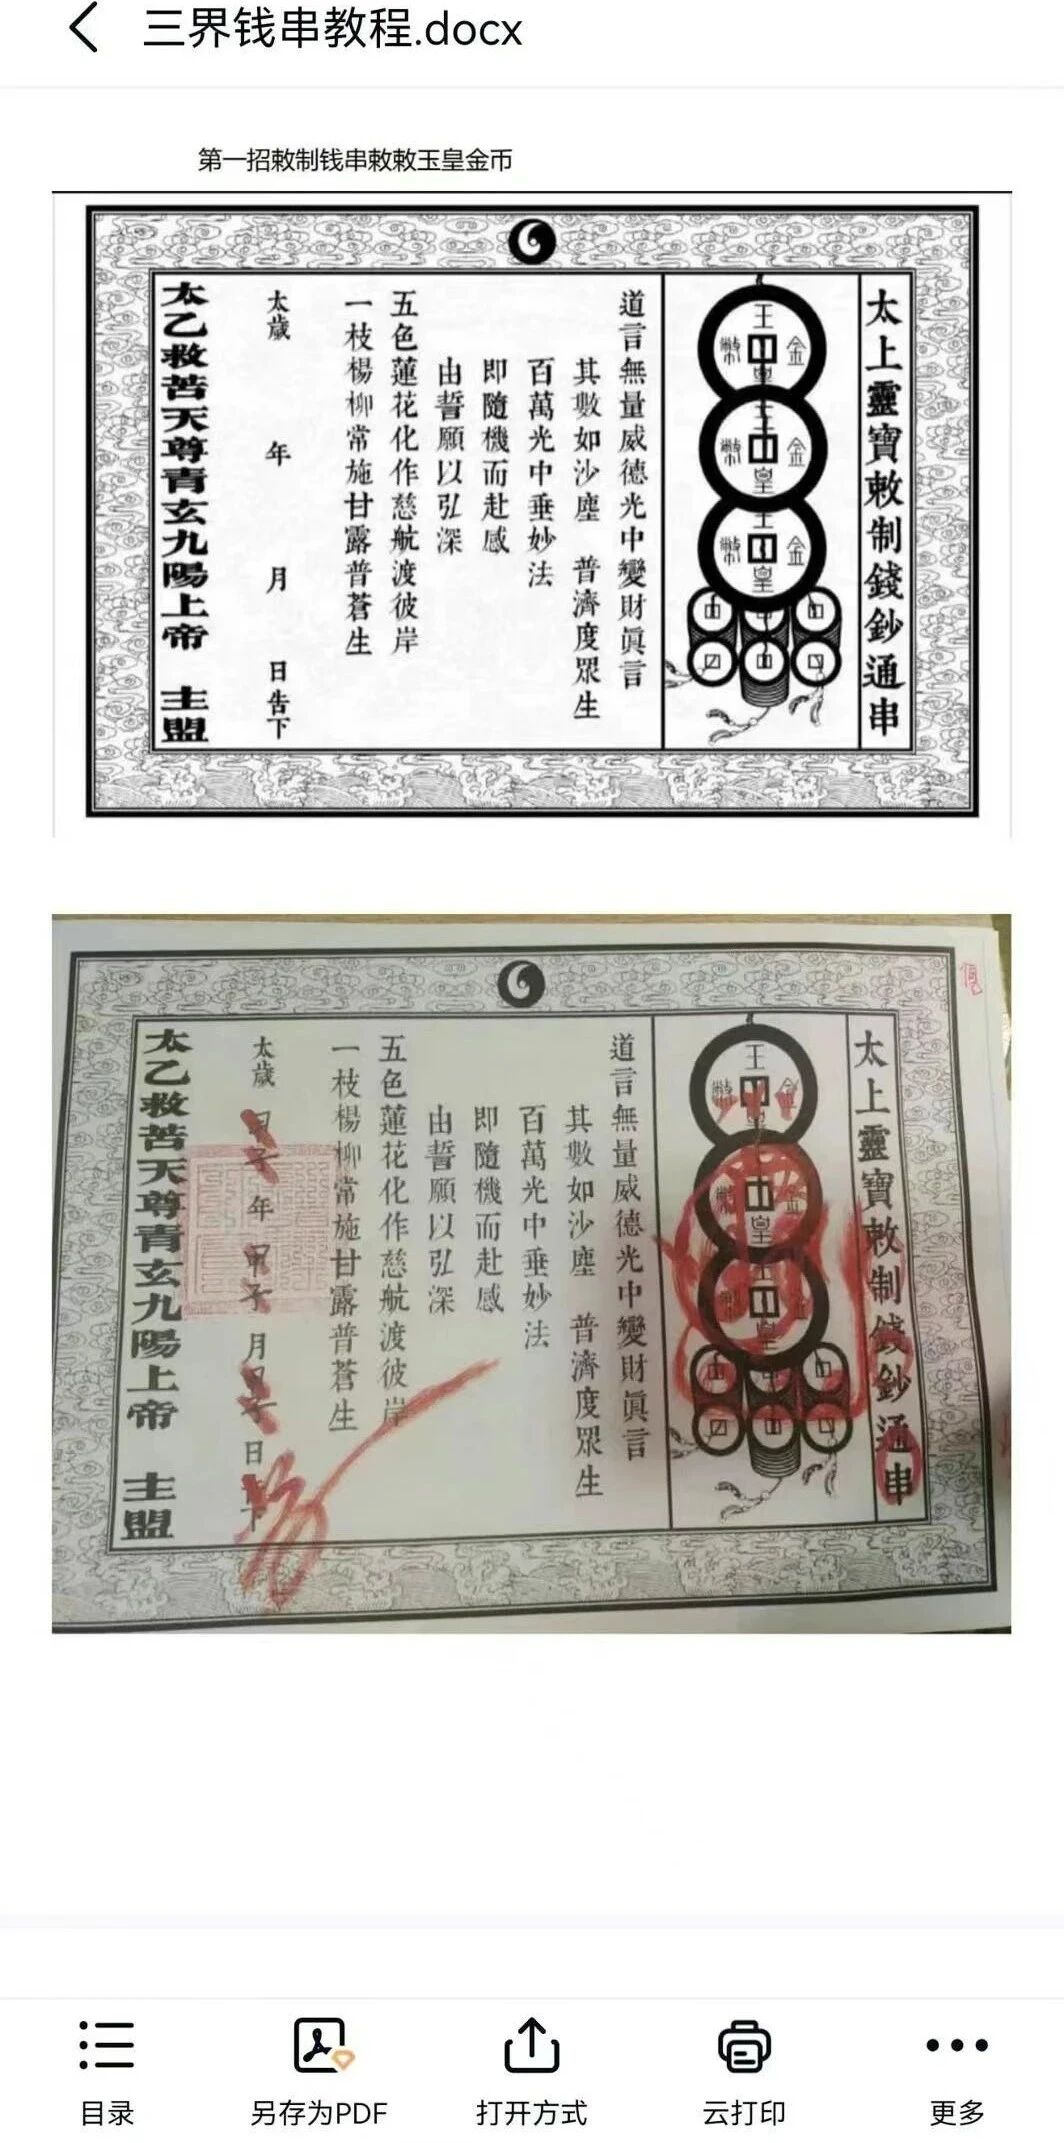 三界钱串教程.docx
第一招敕制钱串敕敕玉皇金币
太上靈寶敕制錢鈔通串
玉皇金幣
玉皇金幣
玉皇金幣
道言無量威德光中變財眞言
其數如沙塵 普濟度眾生
百萬光中垂妙法
即隨機而赴感
由誓願以弘深
五色蓮花化作慈航渡彼岸
一枝楊柳常施甘露普蒼生
太歲 年 月 日告下
太乙救苦天尊青玄九陽上帝 主盟
太上靈寶敕制錢鈔通串
道言無量威德光中變財眞言
其數如沙塵 普濟度眾生
百萬光中垂妙法
即隨機而赴感
由誓願以弘深
五色蓮花化作慈航渡彼岸
一枝楊柳常施甘露普蒼生
太歲 甲子 年 甲子 月 甲子 日 下
太乙救苦天尊青玄九陽上帝 主盟
目录
另存为PDF
打开方式
云打印
更多